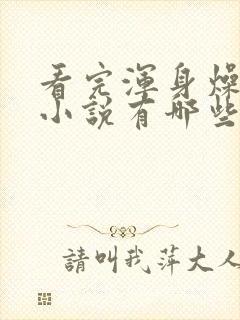 看完渾身燥
小說有哪些
請叫我萍大人